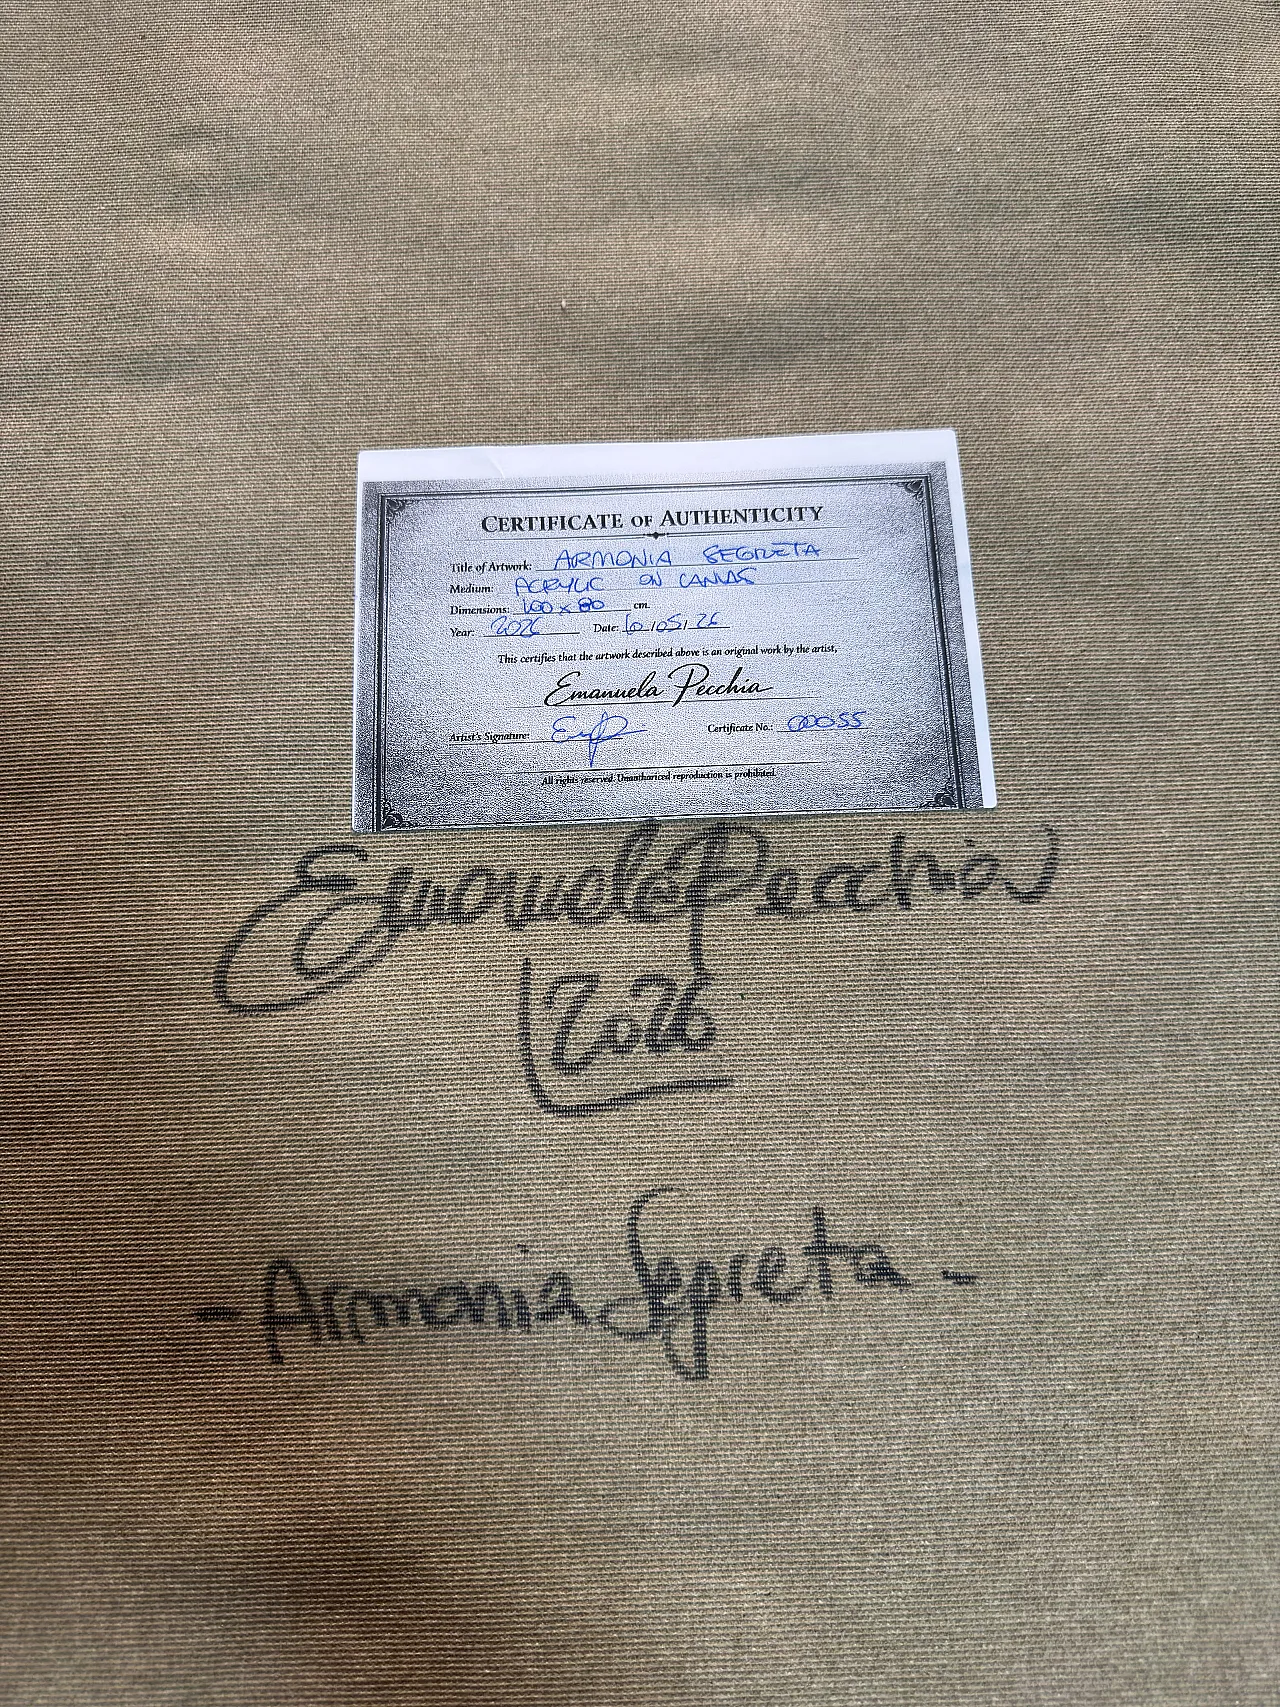 CERTIFICATE OF AUTHENTICITY
Title of Artwork: ARMONIA SEGRETA
Medium: ACRYLIC ON CANVAS
Dimensions: 100 x 80 cm.
Year: 2026 Date: 10/05/26
This certifies that the artwork described above is an original work by the artist,
Emanuela Pecchia
Artist's Signature: Certificate No.: 00055
All rights reserved. Unauthorized reproduction is prohibited.
Emanuela Pecchia
2026
- Armonia Segreta -